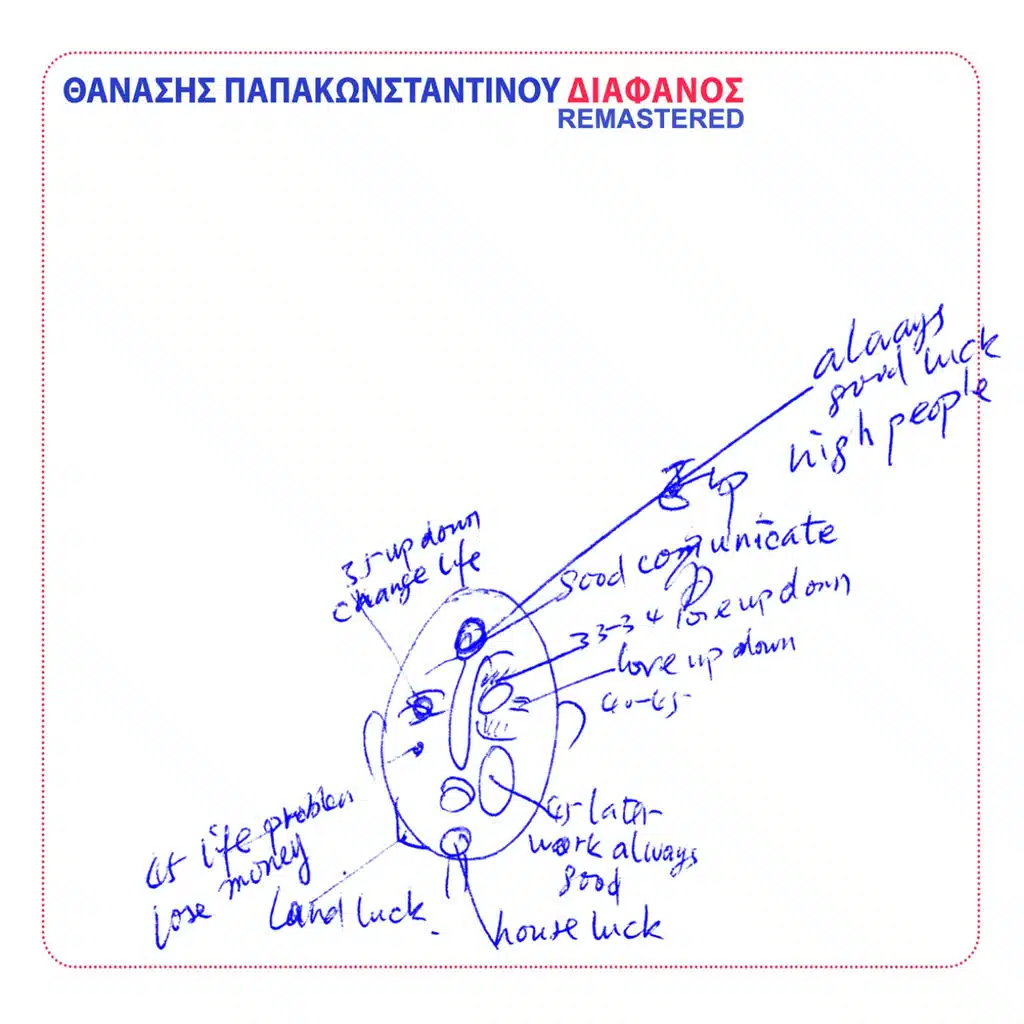 ΘΑΝΑΣΗΣ ΠΑΠΑΚΩΝΣΤΑΝΤΙΝΟΥ ΔΙΑΦΑΝΟΣ
REMASTERED
always
good luck
high people
up
35 up down
change life
good communicate
33-34 lose up down
love up down
40-45
45 later
work always
good
45 life problem
lose money
Land luck.
house luck